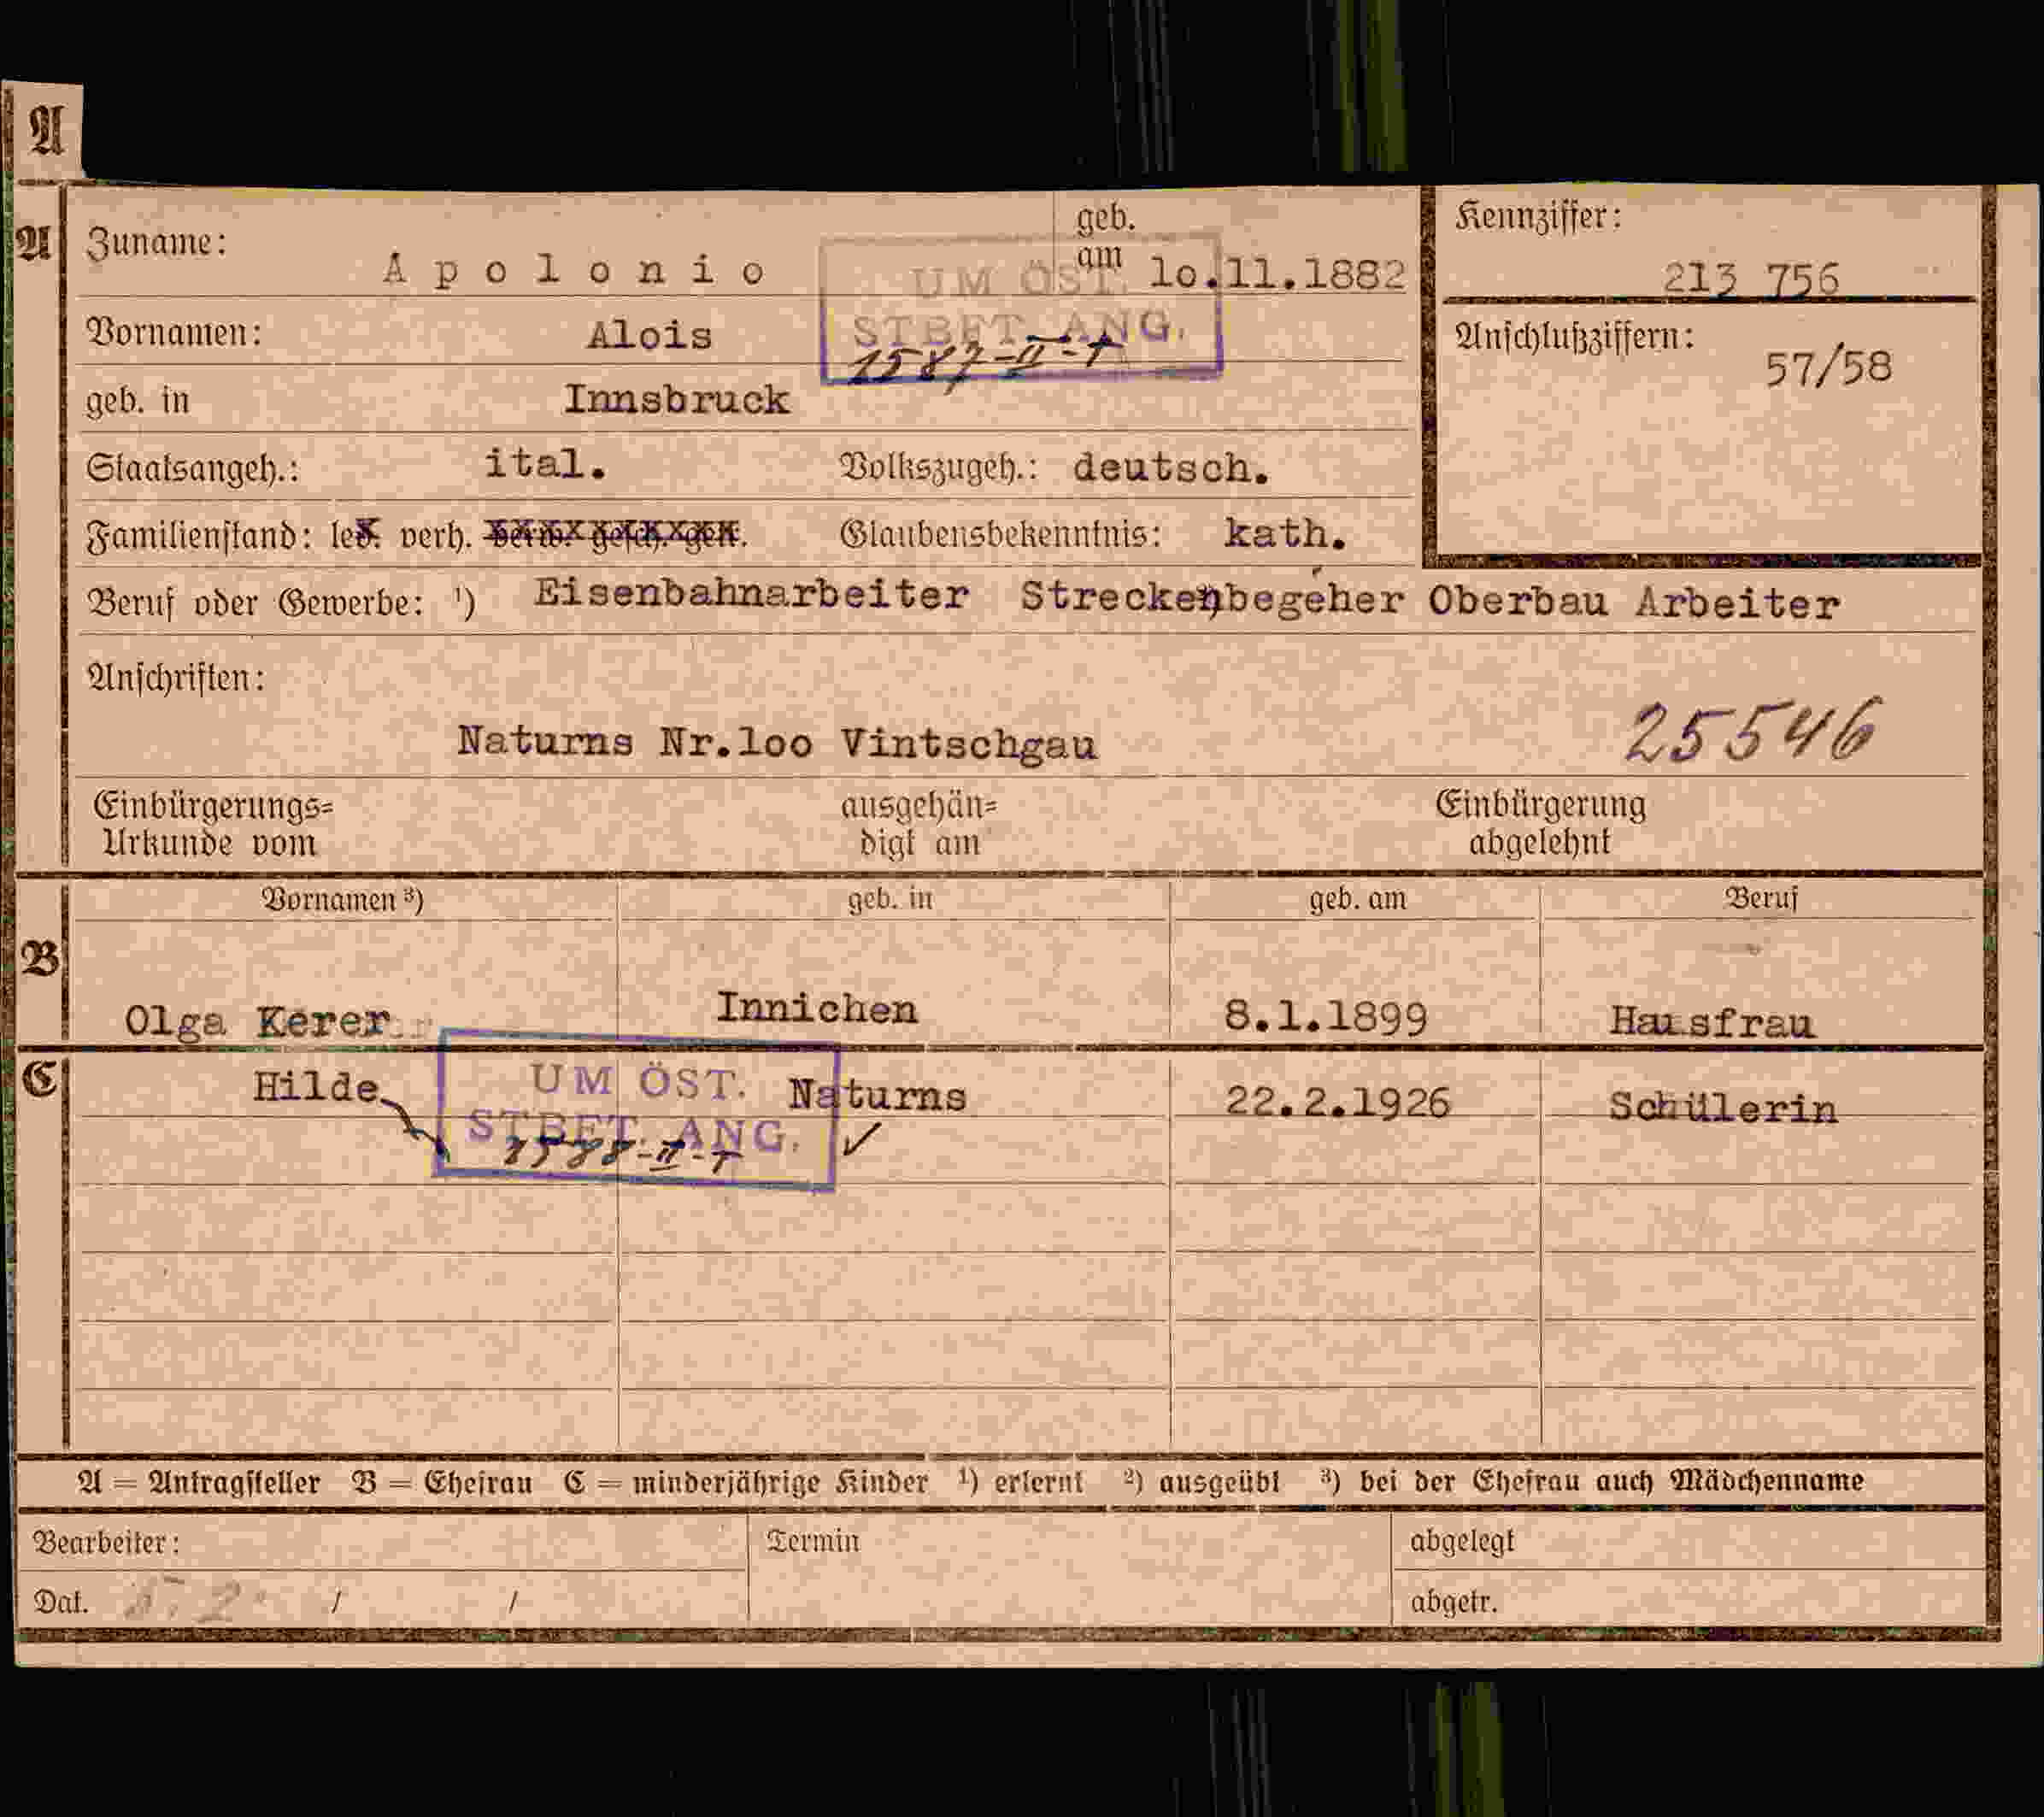 A
A
Zuname: Apolonio geb. am 10.11.1882
Kennziffer: 213 756
UM ÖST.
STBET. ANG.
1587-II-T
Vornamen: Alois
Anschlußziffern: 57/58
geb. in Innsbruck
Staatsangeh.: ital. Volkszugeh.: deutsch.
Familienstand: led. verh. verw. gesch. getr. Glaubensbekenntnis: kath.
Beruf oder Gewerbe: ¹) Eisenbahnarbeiter Streckenbegeher Oberbau Arbeiter
Anschriften:
Naturns Nr.100 Vintschgau 25546
Einbürgerungs= ausgehän= Einbürgerung
Urkunde vom digt am abgelehnt
Vornamen ³) geb. in geb. am Beruf
B
Olga Kerer Innichen 8.1.1899 Hausfrau
C
Hilde Naturns 22.2.1926 Schülerin
UM ÖST.
STBET. ANG.
1588-II-T
A = Antragsteller B = Ehefrau C = minderjährige Kinder ¹) erlernt ²) ausgeübt ³) bei der Ehefrau auch Mädchenname
Bearbeiter: Termin abgelegt
Dat. / / abgetr.